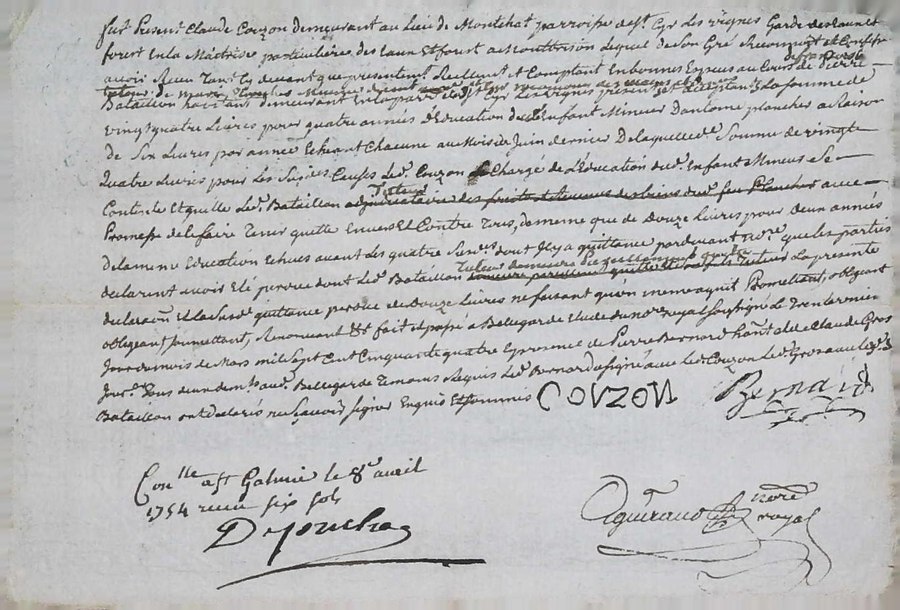 fut Present Claude Couzon demeurant au Lieu de Montchat parroisse de st Cyr les vignes Garde des eaux et
forest En la Maitrise particuliere des Eaux Et forest de Montbrison Lequel de Son Gré Reconnoit et Confesse
avoir Receu Tant Cy devant que presentemt Reellemt et Comptant En bonnes Especes au Cours de Pierre
Bataillon habitant demeurant En la parr de st Cyr Les vignes present Et acceptant La Somme de
vingt quatre Livres pour quatre années d'Education de Enfant Mineur D'antoine plancher a Raison
de Six Livres par année Echeant Chacune au Mois de Juin dernier De laquelle de Somme de vingt
quatre Livres pour Les Susdes Causes Led. Couzon Chargé de L'Education dud. Enfant Mineur Se
Contente Et quitte Led. Bataillon Tuteur adjudicataire des fruits et avec
Promesse de le faire Tenir quitte Envers Et Contre Tous, de meme que de Douze Livres pour deux années
de la meme Education Echues avant Les quatre Susdes dont Il y a quittance pardevant nore que Les parties
declarent avoir Eté perdue dont Led. Bataillon Tuteur demeure Pareillement quitte La presente
declaraon Et La Susde quittance perdue de Douze Livres ne faisant qu'un meme acquit Promettant, obligeant
obligeant, soumettant, Renonceant &st fait et passé a Bellegarde Etude du nore royal soussigné Le Trente unie
Jour du mois de Mars mil Sept Cent Cinquante quatre En presence de Pierre Bernard hant de Claude Gros
Tous deux demts aud. Bellegarde Temoins Requis Led. Bernard a signé avec Led. Couzon Led. Gros avec led.
Bataillon ont declarés ne Scavoir signer Enquis Et Sommés COUZON Bernard
Conlle a st Galmier le 8e avril
1754 receu six sols
nore
royal